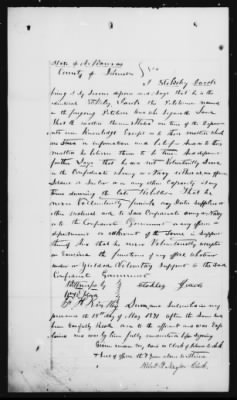 State of Arkansas
County of Johnson } ss
I Stokeley Cowch
being duly Sworn depose and Says that he is the
identical Stokeley Cowch the Petitioner named
in the foregoing Petition and who Signed the Same
That the matters therein Stated are true of the Deponents
own Knowledge Except as to those matters which
are Stated on information and belief and as to those
matters he believes them to be true and deponent
further Says that he has not Voluntarily Served
in the Confederate Army or Navy either as an officer
Soldier or Sailor or in any other Capacity at any
time during the late Rebellion That he
never Voluntarily furnished any Stores Supplies or
other material aid to Said Confederate Army or Navy
or to the Confederate Government or any officer
department or adherent of the Same in Support
thereof And that he never Voluntarily accepted
or Exercised the functions of any office whatsoever
under or yielded Voluntary Support to the Said
Confederate Government
Witnesses by
Stokley Cowch
Sworn and Subscribed in my
presence the 15th day of May 1871 after the Same had
been Carefully read over to the affiant and was Explained
and was by him fully understood before Signing
Given under my hand as Clerk of
and Seal of office the day and year above written
Clerk